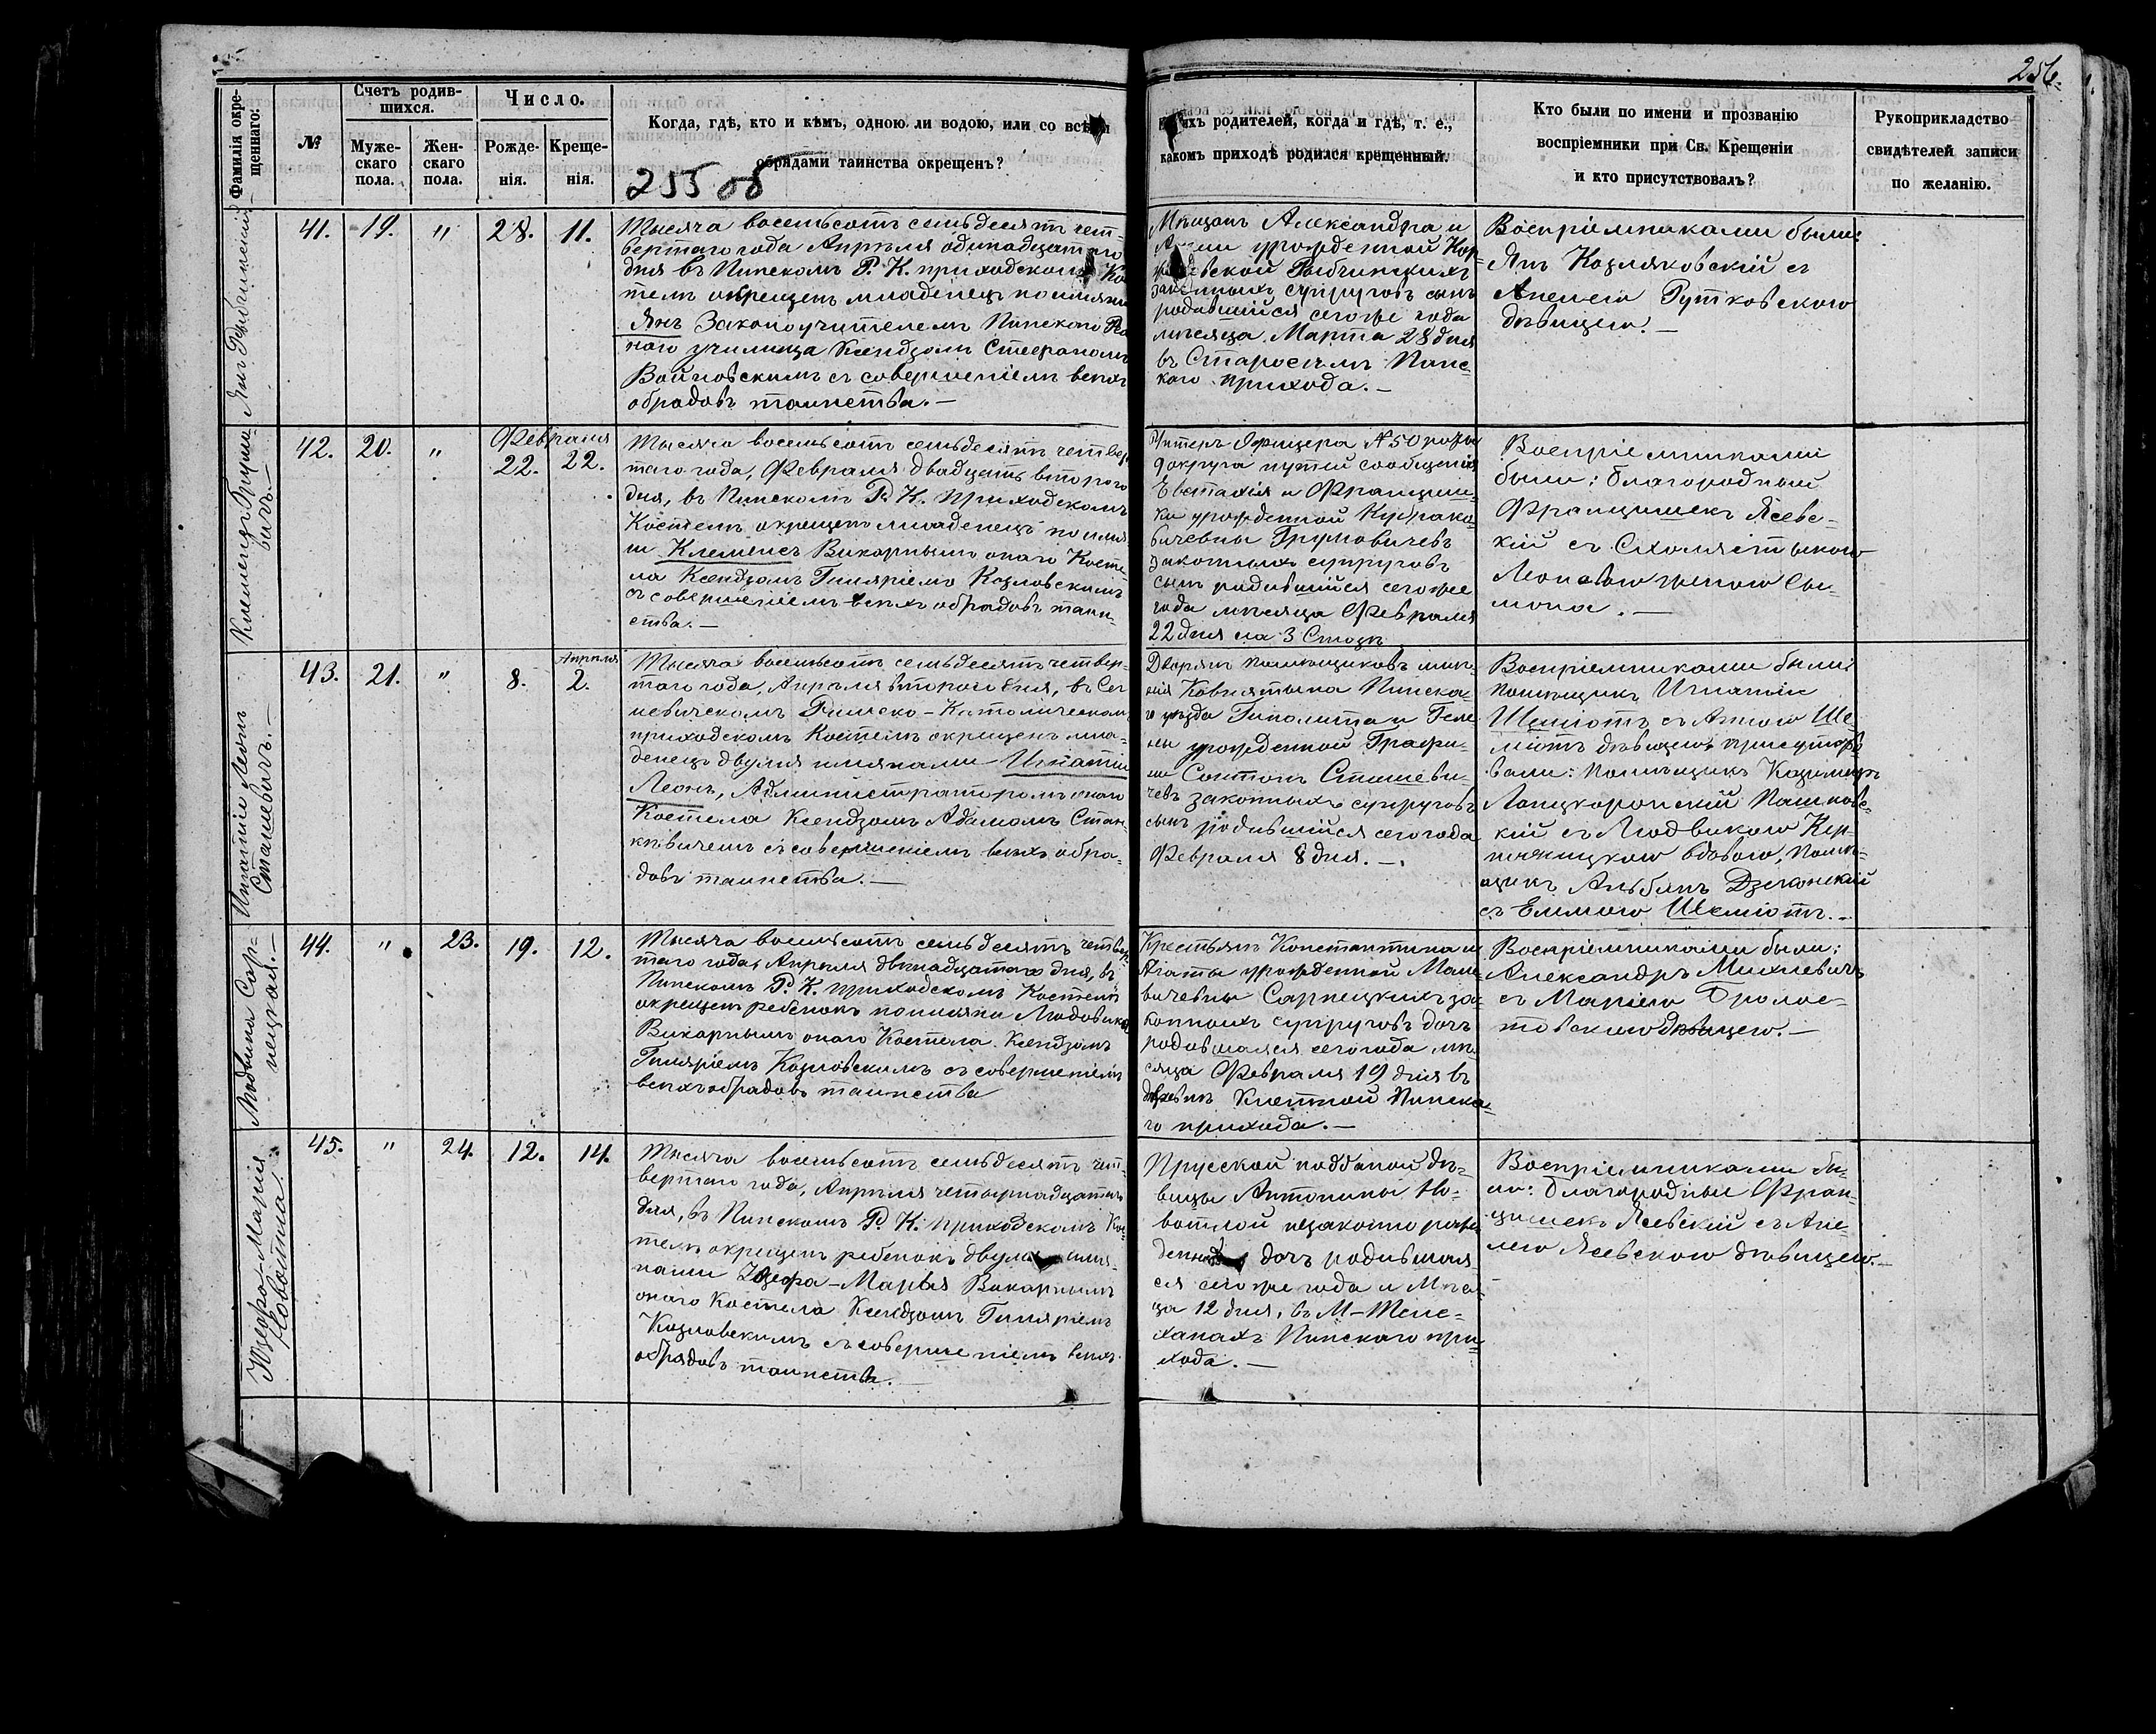 256.
Фамилія окре-
щеннаго:
№
Счетъ родив-
шихся.
Муже-
скаго
пола.
Жен-
скаго
пола.
Число.
Рожде-
нія.
Креще-
нія.
Когда, гдѣ, кто и кѣмъ, одною ли водою, или со всѣми
обрядами таинства окрещенъ?
255 об
какихъ родителей, когда и гдѣ, т. е.,
какомъ приходѣ родился крещенный.
Кто были по имени и прозванію
воспріемники при Св. Крещеніи
и кто присутствовалъ?
Рукоприкладство
свидѣтелей записи
по желанію.
Янъ
41.
19.
"
28.
11.
Тысяча восемьсотъ семьдесятъ чет-
вертаго года Апрѣля одинадцатаго
дня въ Пинскомъ Р. К. приходскомъ Кос-
телѣ окрещенъ младенецъ по имяни
Янъ Законоучителемъ Пинского
наго училища Ксендзомъ Стефаномъ
Войновскимъ съ совершеніемъ всѣхъ
обрядовъ таинства.—
Мѣщанъ Александра и
урожденной
Рыбчинскихъ
законныхъ супруговъ сынъ
родившійся сегоже года
мѣсяца Марта 28 дня
въ Староселѣ Пинс-
каго прихода.—
Воспріемниками были:
Янъ Козляковскій съ
Анелею Рутковскою
дѣвицею.—
Клеменсъ Груно-
вичъ.—
42.
20.
"
Февраля
22.
22.
Тысяча восемьсотъ семьдесятъ четвер-
таго года, Февраля двадцать второго
дня, въ Пинскомъ Р. К. приходскомъ
Костелѣ окрещенъ младенецъ по имя-
ни Клеменсъ Викарнымъ онаго Косте-
ла Ксендзомъ Гиляріемъ Козловскимъ
съ совершеніемъ всѣхъ обрядовъ таин-
ства.—
Унтеръ Офицера № 50 роты
9 округа путей сообщенія
Евстахія и Францишки
урожденной Кубрако-
вичевны Груновичевъ
законныхъ супруговъ
сынъ родившійся сегоже
года мѣсяца Февраля
22 дня на 3 Стоцкъ
Воспріемниками
были: благородный
Францишекъ Ясевс-
кій съ Схоластыкою
Леоновою женою Сы-
мона.—
Игнатій Леонъ
Станевичъ.—
43.
21.
"
8.
Апрѣля
2.
Тысяча восемьсотъ семьдесятъ четвер-
таго года, Апрѣля второго дня, въ Сер-
невичскомъ Римско-Католическомъ
приходскомъ Костелѣ окрещенъ мла-
денецъ двумя имянами Игнатій
Леонъ, Администраторомъ онаго
Костела Ксендзомъ Адамомъ Стан-
кѣвичемъ съ совершеніемъ всѣхъ обря-
довъ таинства.—
Дворянъ помѣщиковъ имѣ-
нія Ковнятына Пинска-
го уѣзда Гиполита и Геле-
ны урожденной Графи-
ни
чевъ законныхъ супруговъ
сынъ родившійся сего года
Февраля 8 дня.—
Воспріемниками были:
помѣщикъ Игнатій
Шеміотъ съ Анною Ше-
міотъ дѣвицею, присутство-
вали: помѣщикъ Казимиръ
съ Людвикою Кер-
вдовою, помѣ-
щикъ Альбинъ Дзеконскій
съ Еммою Шеміотъ.—
Людвика Сар-
нецкая.—
44.
"
23.
19.
12.
Тысяча восемьсотъ семьдесятъ четвер-
таго года, Апрѣля двѣнадцатаго дня, въ
Пинскомъ Р. К. приходскомъ Костелѣ
окрещенъ ребенокъ по имяни Людовика
Викарнымъ онаго Костела Ксендзомъ
Гиляріемъ Козловскимъ съ совершеніемъ
всѣхъ обрядовъ таинства
Крестьянъ Константина и
Агаты урожденной
вичевны Сарнецкихъ за-
конныхъ супруговъ дочь
родившаяся сего года мѣ-
сяца Февраля 19 дня въ
деревнѣ Клетной Пинска-
го прихода.—
Воспріемниками были:
Александръ Михневичъ
съ Маріею Бролос-
товскою дѣвицею.—
Юзефа-Марія
Новотна.
45.
"
24.
12.
14.
Тысяча восемьсотъ семьдесятъ чет-
вертаго года, Апрѣля четырнадцатаго
дня, въ Пинскомъ Р. К. приходскомъ Кос-
телѣ окрещенъ ребенокъ двумя имя-
нами Юзефа-Марія Викарнымъ
онаго Костела Ксендзомъ Гиляріемъ
Козловскимъ съ совершеніемъ всѣхъ
обрядовъ таинства.
Прусской подданой дѣ-
вицы Антонины Но-
вотной незаконно рож-
денная дочь родившая-
ся сегоже года и Мѣся-
ца 12 дня, въ М-Теле-
ханахъ Пинскаго при-
хода.—
Воспріемниками бы-
ли: благородные Фран-
цишекъ Ясевскій съ Ане-
лею Ясевскою дѣвицею.—